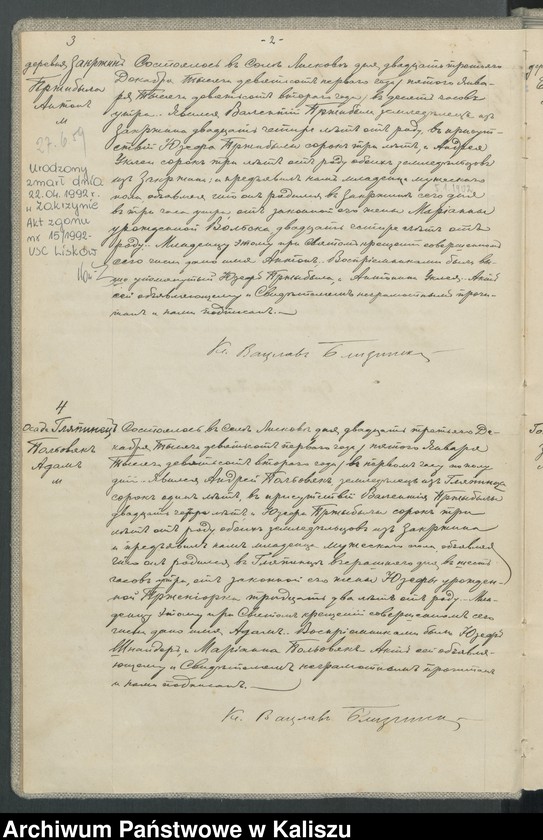 -2-
3
деревня Закржинъ
Пржибыла
Антонъ
м
27.6.59
urodzony
zmarł dnia
22.04.1992 r.
w Zakrzynie
Akt zgonu
nr 15/1992-
USC Lisków
Состоялось въ Селѣ Лисковѣ дня двадцать третьяго
Декабря тысяча девятьсотъ перваго года / пятого Янва-
ря тысяча девятьсотъ второго года / въ десять часовъ
утра. Явился Валентій Пржибыла земледѣлецъ изъ
Закржина двадцать четыре лѣтъ отъ роду, въ присут-
ствіи Юзефа Пржибыла сорокъ три лѣтъ, и Андрея
сорокъ три лѣтъ отъ роду обоихъ земледѣльцовъ
изъ Закржина, и предъявилъ намъ младенца мужескаго
5.1.1902
пола объявляя что онъ родился въ Закржинѣ сего дня
въ три часа утра, отъ законной его жены Маріанны
урожденной двадцать четыре лѣтъ отъ
роду. Младенцу этому при Святомъ крещеніи совершенномъ
сего числа дано имя Антонъ. Воспріемниками были вы-
ше упомянутый Юзефъ Пржибыла, и Антонина Актъ
сей объявляющему и Свидѣтелямъ неграмотнымъ прочи-
танъ и нами подписанъ.
Кс. Вацлавъ Близинскi
4
осада Гляпинецъ
Польовякъ
Адамъ
м
Состоялось въ Селѣ Лисковѣ дня двадцать третьяго Де-
кабря тысяча девятьсотъ перваго года / пятого Января
тысяча девятьсотъ второго года / въ первомъ часу по полу
дни. Явился Андрей Польовякъ, земледѣлецъ изъ Гляпинца
сорокъ одинъ лѣтъ, въ присутствіи Валентія Пржибылы
двадцать четыре лѣтъ и Юзефа Пржибыла сорокъ три
лѣтъ отъ роду обоихъ земледѣльцовъ изъ Закржина
и предъявилъ намъ младенца мужескаго пола объявляя
что онъ родился въ Гляпинцѣ вчерашняго дня въ шесть
часовъ утра, отъ законной его жены Юзефы урожден-
ной тридцать два лѣтъ отъ роду. Мла-
денцу этому при Святомъ крещеніи совершенномъ сего
числа дано имя Адамъ. Воспріемниками были Юзефъ
Шнайдеръ, и Маріанна Польовякъ. Актъ сей объявля-
ющему и Свидѣтелямъ неграмотнымъ прочитанъ
и нами подписанъ.
Кс. Вацлавъ Близинскi
Archiwum Państwowe w Kaliszu